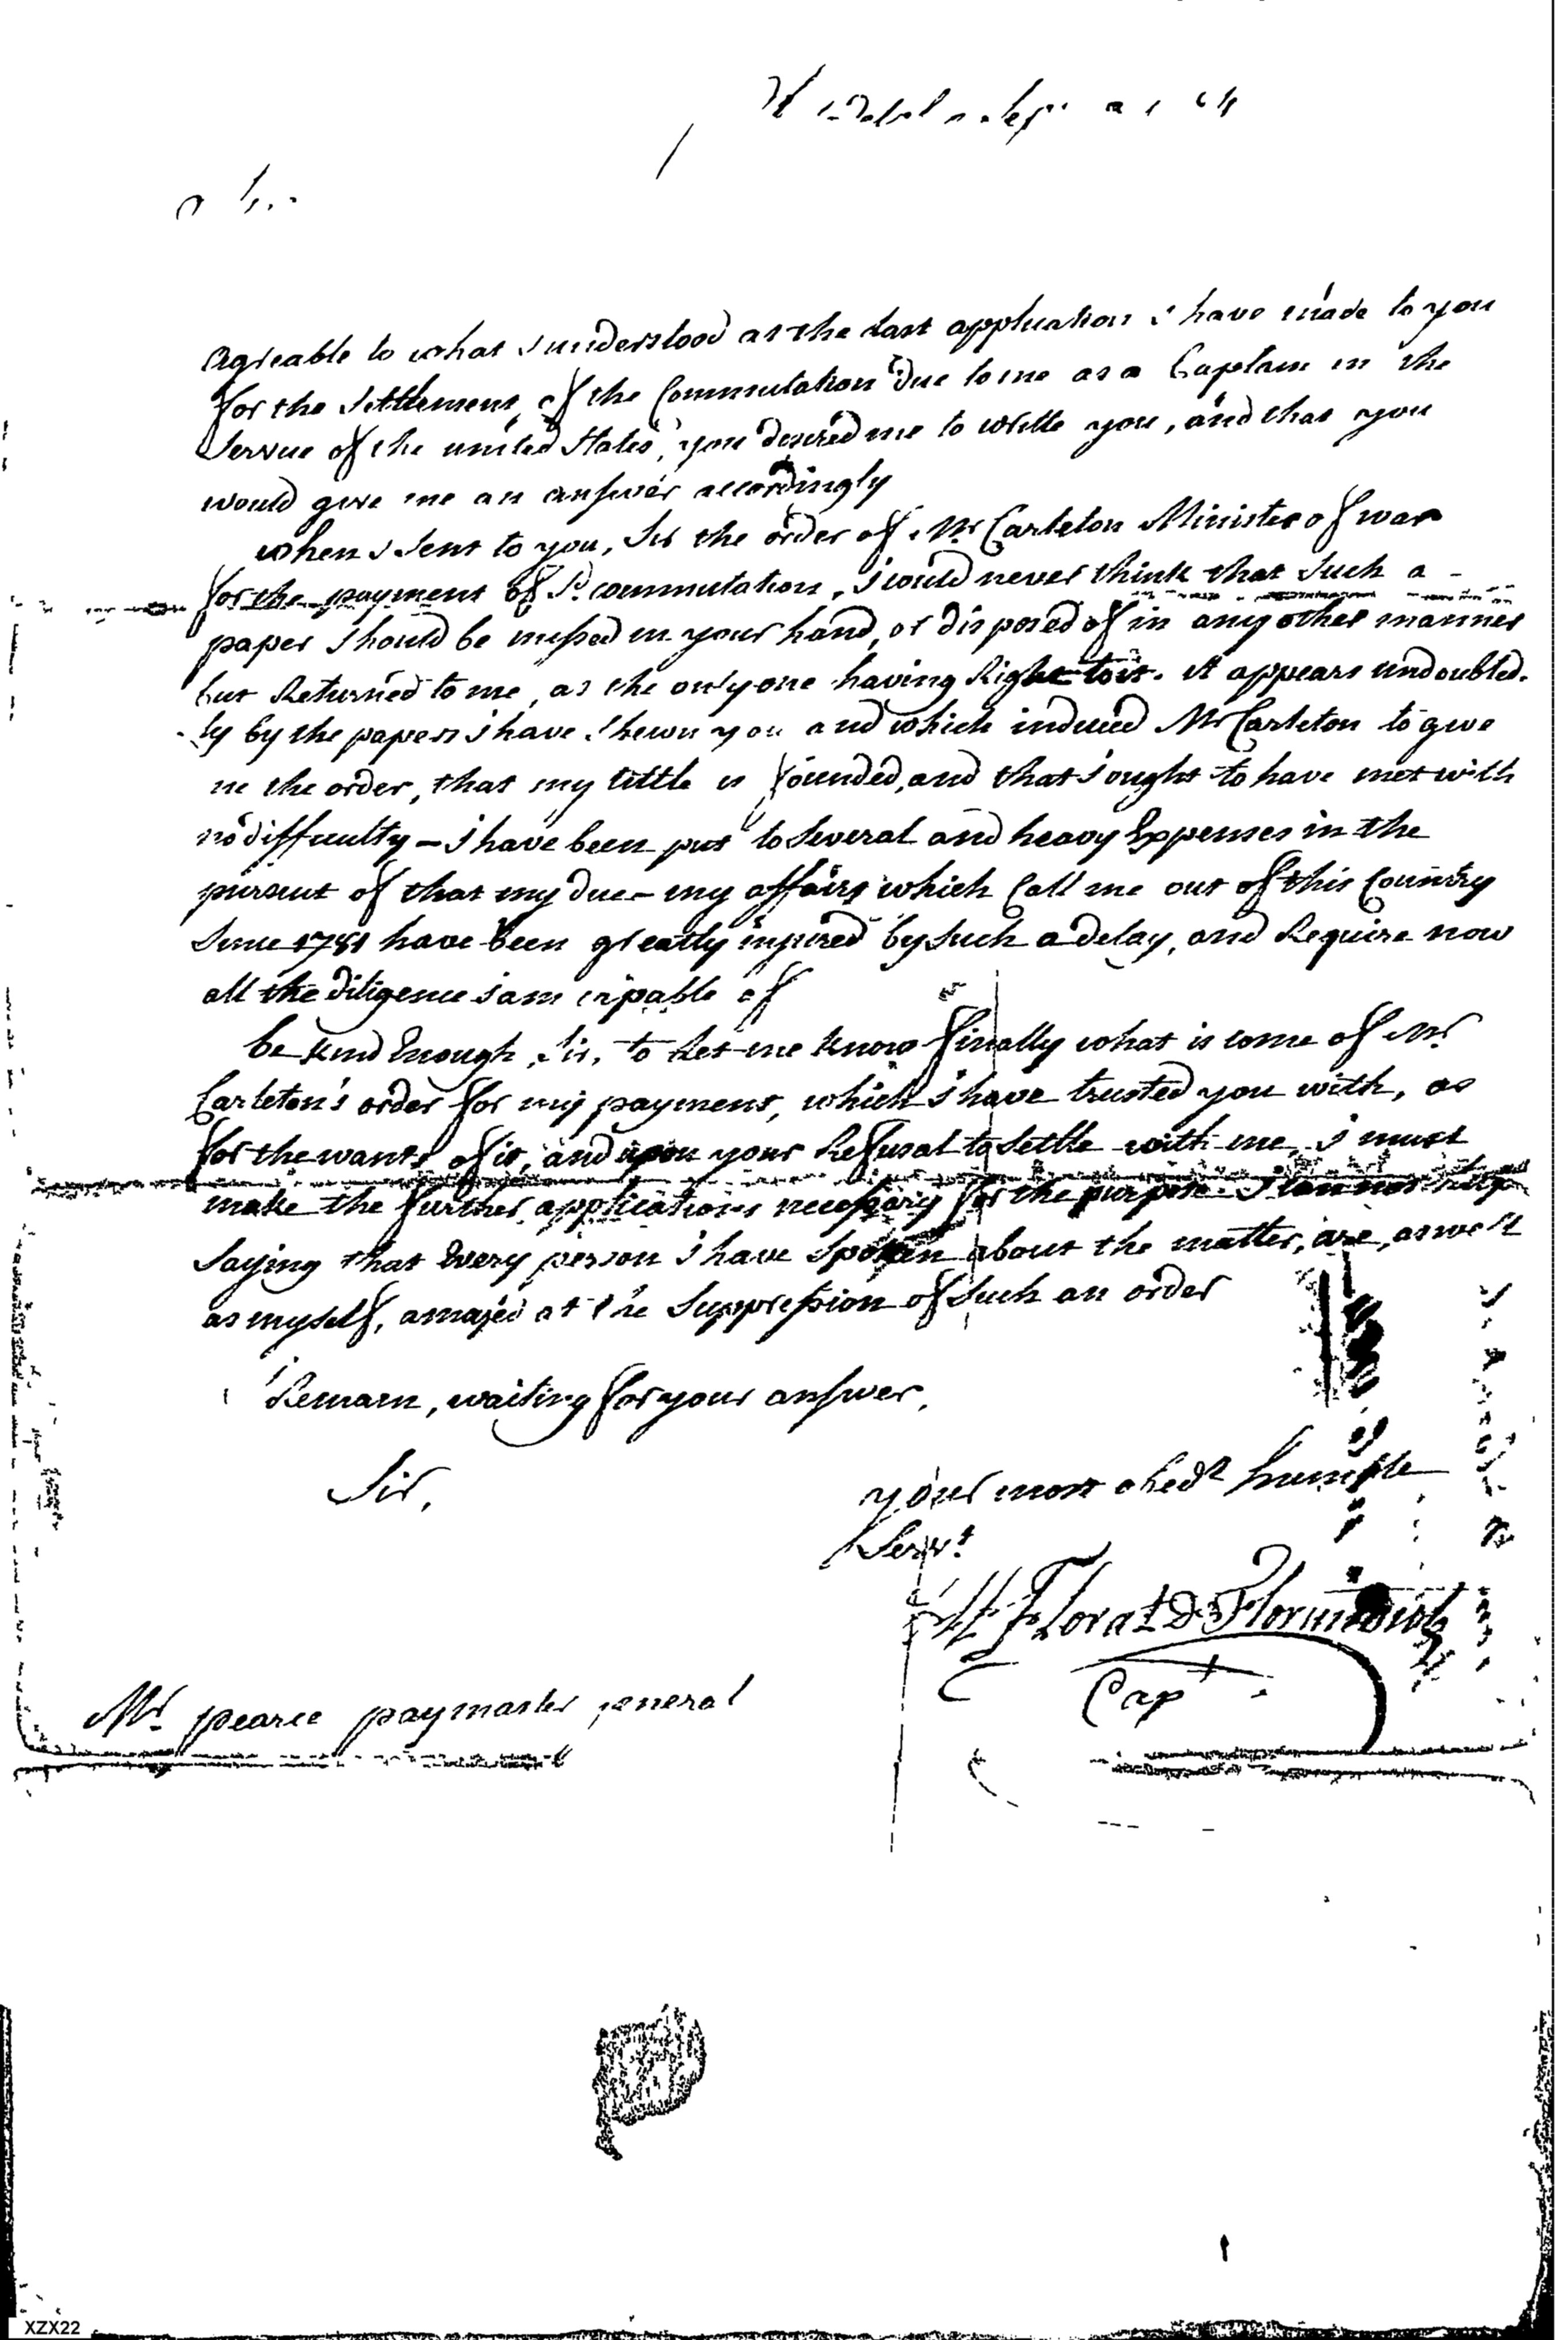 agreable to what i understood at the last application i have made to you
for the Settlement of the Commutation Due to me as a Captain in the
Service of the united States, you desired me to write you, and that you
would give me an answer accordingly
when i sent to you, Sir the order of Mr Carleton Minister of war
for the payment of Sd commutation, i could never think that Such a
paper Should be missed in your hand, or disposed of in any other manner
but Returned to me, as the only one having Right to it. it appears undoubted-
ly by the papers i have Shewn you and which induced Mr Carleton to give
me the order, that my tittle is founded, and that i ought to have met with
no difficulty - i have been put to Several and heavy Expenses in the
pursuit of that my due - my affairs which Call me out of this Country
Since 1781 have been greatly injured by Such a delay, and Require now
all the diligence i am capable of
be kind Enough, Sir, to Let me know finally what is come of Mr
Carleton's order for my payment, which i have trusted you with, as
for the wants of it, and upon your Refusal to Settle with me, i must
make the further applications necessary for the purpose. i can not help
Saying that Every person i have Spoken about the matter, are, as well
as myself, amazed at the Suppression of Such an order
i Remain, waiting for your answer,
Sir,
your most obedt humble
Servt
Florat D Florimont
Capt
Mr. pearce paymaster general
XZX22